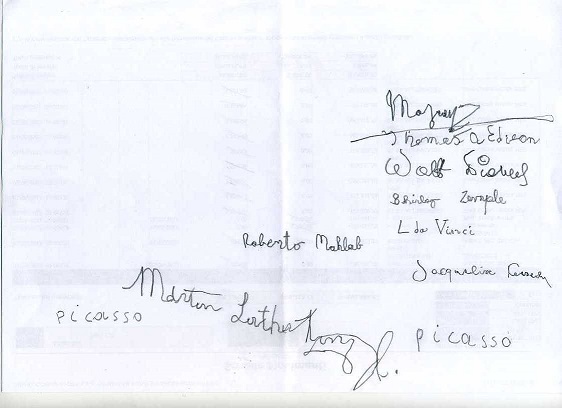 Mozart
Thomas a Edison
Walt Disney
Shirley Temple
L da Vinci
Roberto Mahlab
Jacqueline Kennedy
Martin Luther King Jr.
picasso
picasso